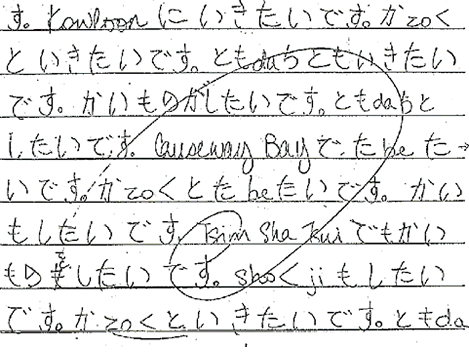 す。Kowloon にいきたいです。かzoく
といきたいです。ともdaちともいきたい
です。かいものがしたいです。ともdaちと
したいです。Causeway Bayで、たbeた→
いです。かzoくとたbeたいです。かい
もしたいです。Tsim Sha Tsui でもかい
ものをしたいです。shoくjiもしたい
です。かzoくといきたいです。ともda